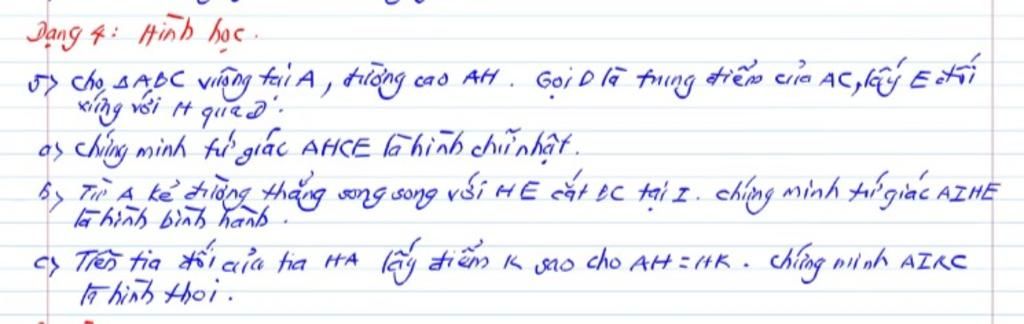 Dạng 4: Hình học.
5> Cho ΔABC vuông tại A, đường cao AH. Gọi D là trung điểm của AC, lấy E đối
xứng với H qua D.
a> chứng minh tứ giác AHCE là hình chữ nhật.
b> Từ A kẻ đường thẳng song song với HE cắt BC tại I. chứng minh tứ giác AIHE
là hình bình hành.
c> Trên tia đối của tia HA lấy điểm K sao cho AH = HK. chứng minh AIKC
là hình thoi.